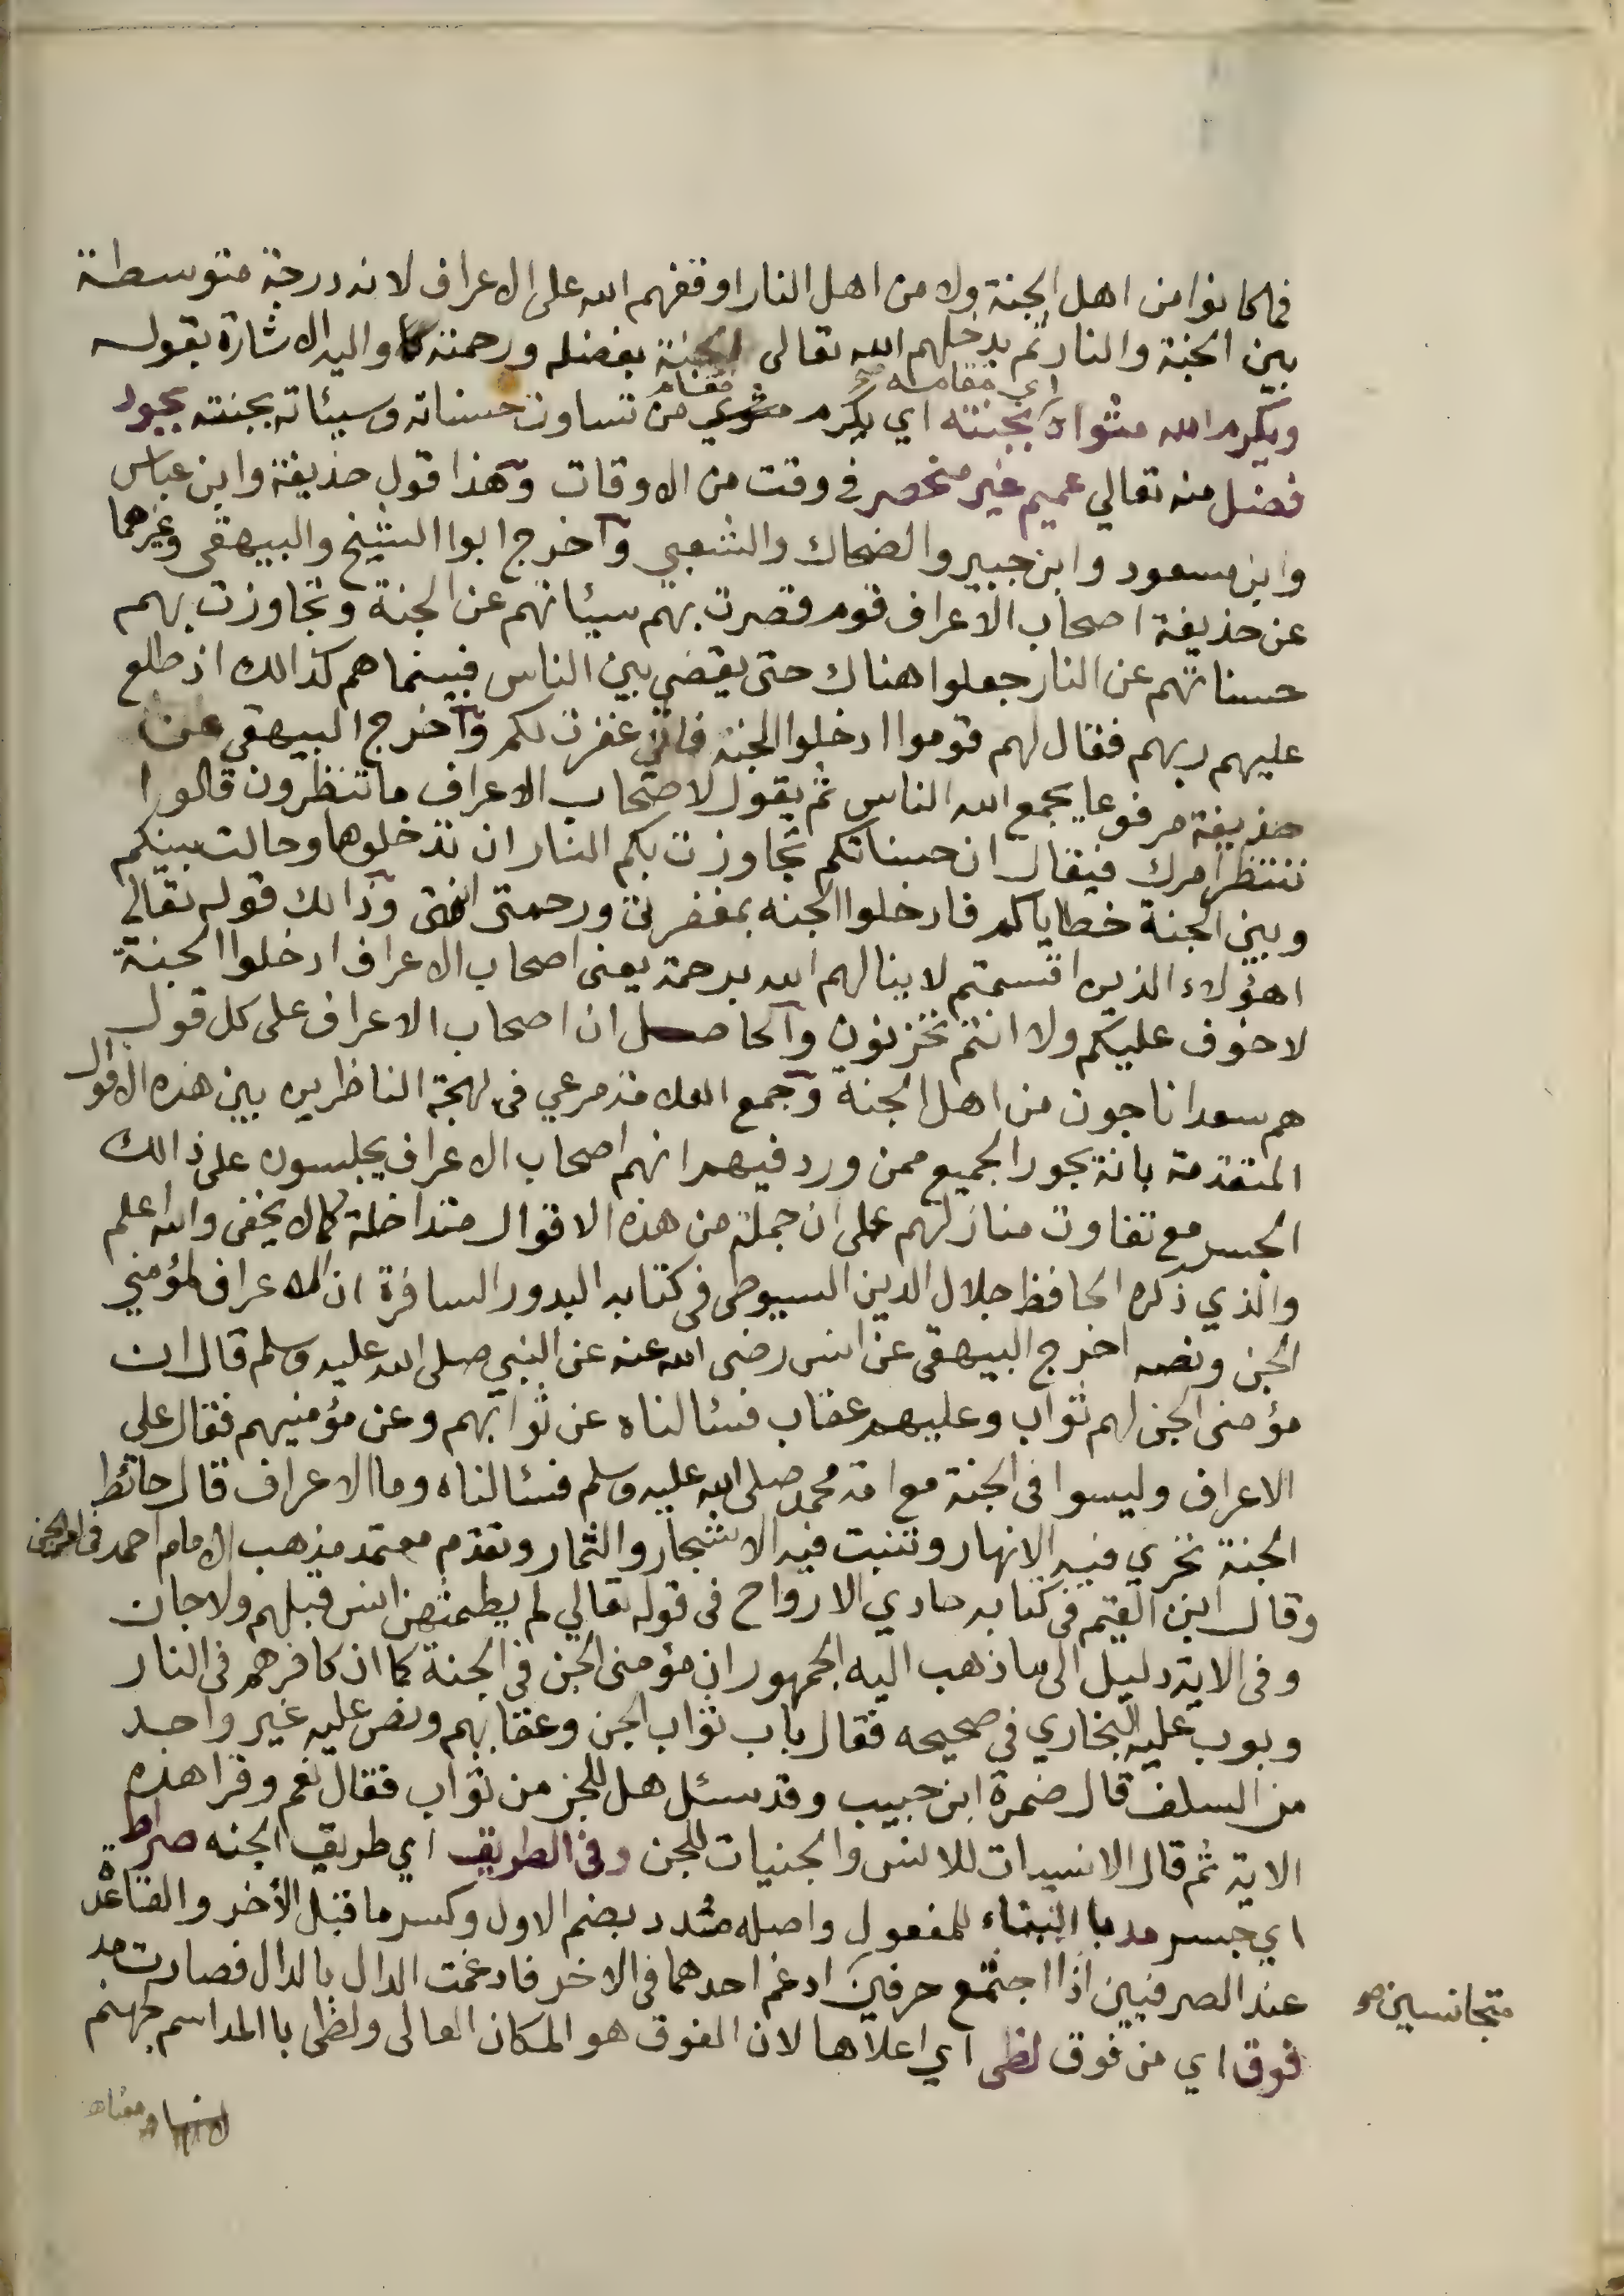 فما كانوا من اهل الجنة ولا من اهل النار اوقفهم الله على الاعراف لانه درجة متوسطة
بين الجنة والنار ثم يدخلهم الله تعالى الجنة بفضله ورحمته واليه الاشارة بقوله
اي مقامه صح
مقام
ويكرم الله مثواه بجنته اي يكرم مثوي من تساوت حسناته وسيئاته بجنته بجود
فضل منه تعالي عميم غير منحصر في وقت من الاوقات وهذا قول حذيفة وابن عباس
وابن مسعود وابن جبير والضحاك والشعبي وآخرج ابوا الشيخ والبيهقى وغيرهما
عن حذيفة اصحاب الاعراف قوم قصرت بهم سيئاتهم عن الجنة وتجاوزت بهم
حسناتهم عن النار جعلوا هناك حتى يقضي بين الناس فبينما هم كذالك اذ طلع
عليهم ربهم فقال لهم قوموا ادخلوا الجنة فاني غفرت لكم وآخرج البيهقى عن
حذيفة مرفوعا يجمع الله الناس ثم يقول لاصحاب الاعراف ما تنظرون قالوا
ننتظر امرك فيقال ان حسناتكم تجاوزت بكم النار ان تدخلوها وحالت بينكم
وبين الجنة خطاياكم فادخلوا الجنه بمغفرتى ورحمتى انتهى وذالك قوله تعالي
اهؤلاء الذين اقسمتم لا ينالهم الله برحمة يعنى اصحاب الاعراف ادخلوا الجنة
لا خوف عليكم ولا انتم تحزنون وآلحاصل ان اصحاب الاعراف على كل قول
هم سعدا ناجون من اهل الجنة وجمع العلامة مرعي فى بهجة الناظرين بين هذه الاقوال
المتقدمة بانة يجوز الجميع ممن ورد فيهم انهم اصحاب الاعراف يجلسون على ذالك
الجسر مع تفاوت منازلهم على ان جملة من هذه الاقوال متداخلة كما لا يخفى والله اعلم
والذي ذكره الحافظ جلال الدين السيوطى فى كتابه البدور السافرة ان الاعراف لمؤمني
الجن ونصه اخرج البيهقى عن انس رضى الله عنه عن النبي صلى الله عليه وسلم قال ان
مؤمنى الجن لهم ثواب وعليهم عقاب فسئالناه عن ثوابهم وعن مؤمنيهم فقال على
الاعراف وليسوا فى الجنة مع امة محمد صلى الله عليه وسلم فسئالناه وما الاعراف قال حائط
الجنة تجري فيه الانهار وتنبت فيه الاشجار والثمار وتقدم معتمد مذهب الامام احمد فى الجن
وقال ابن القيم فى كتابه حادي الارواح فى قوله تعالي لم يطمثهن انس قبلهم ولا جان
وفى الاية دليل الى ما ذهب اليه الجمهور ان مؤمنى الجن في الجنة كما ان كافرهم فى النار
وبوب عليه البخاري في صحيحه فقال باب ثواب الجن وعقابهم ونص عليه غير واحد
من السلف قال ضمرة ابن حبيب وقد سئل هل للجن من ثواب فقال نعم وقرا هذه
الاية ثم قال الانسيات للانس والجنيات للجن وفى الطريق اي طريق الجنه صراط
اي جسر مد با البناء للمفعول واصله مدد بضم الاول وكسر ما قبل الأخر والقاعدة
عند الصرفيين اذا اجتمع حرفين ادغم احدهما فى الاخر فادغمت الدال بالدال فصارت مد
متجانسين صح
فوق اي من فوق لظى اي اعلاها لان الفوق هو المكان العالى ولظى با المد اسم جهنم
ومعناه